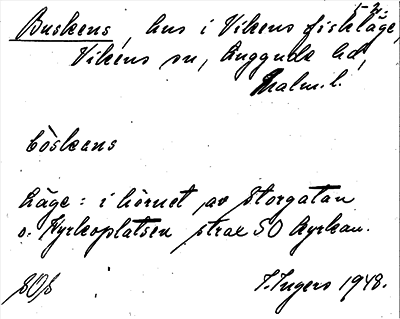 Buskens, hus i Vikens fiskeläge,
Vikens sn, Luggude hd,
Malm. l.
bòskans
Läge: i hörnet av Storgatan
o. Kyrkoplatsen strax SO kyrkan.
I. Ingers 1948.